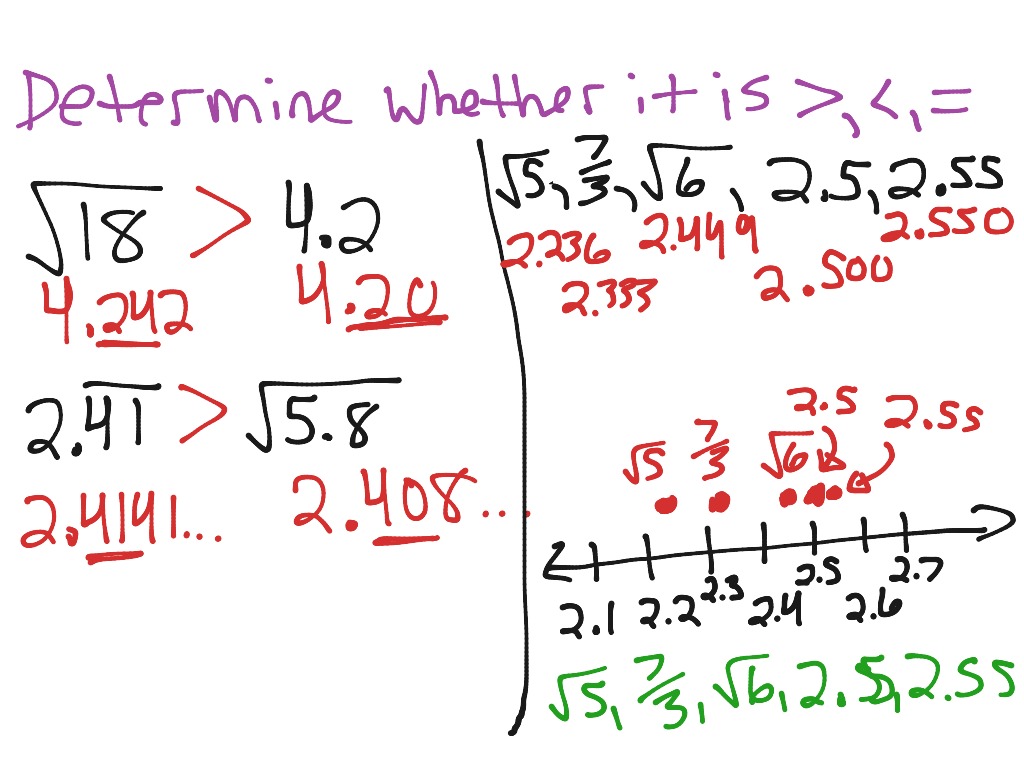 Determine whether it is >, <, =
√18 > 4.2
4.242 4.20
2.4̅1̅ > √5.8
2.4141... 2.408...
√5, 7/3, √6, 2.5, 2.55
2.236 2.449 2.550
2.333 2.500
2.5 2.55
√5 7/3 √6
2.1 2.2 2.3 2.4 2.5 2.6 2.7
√5, 7/3, √6, 2.5, 2.55